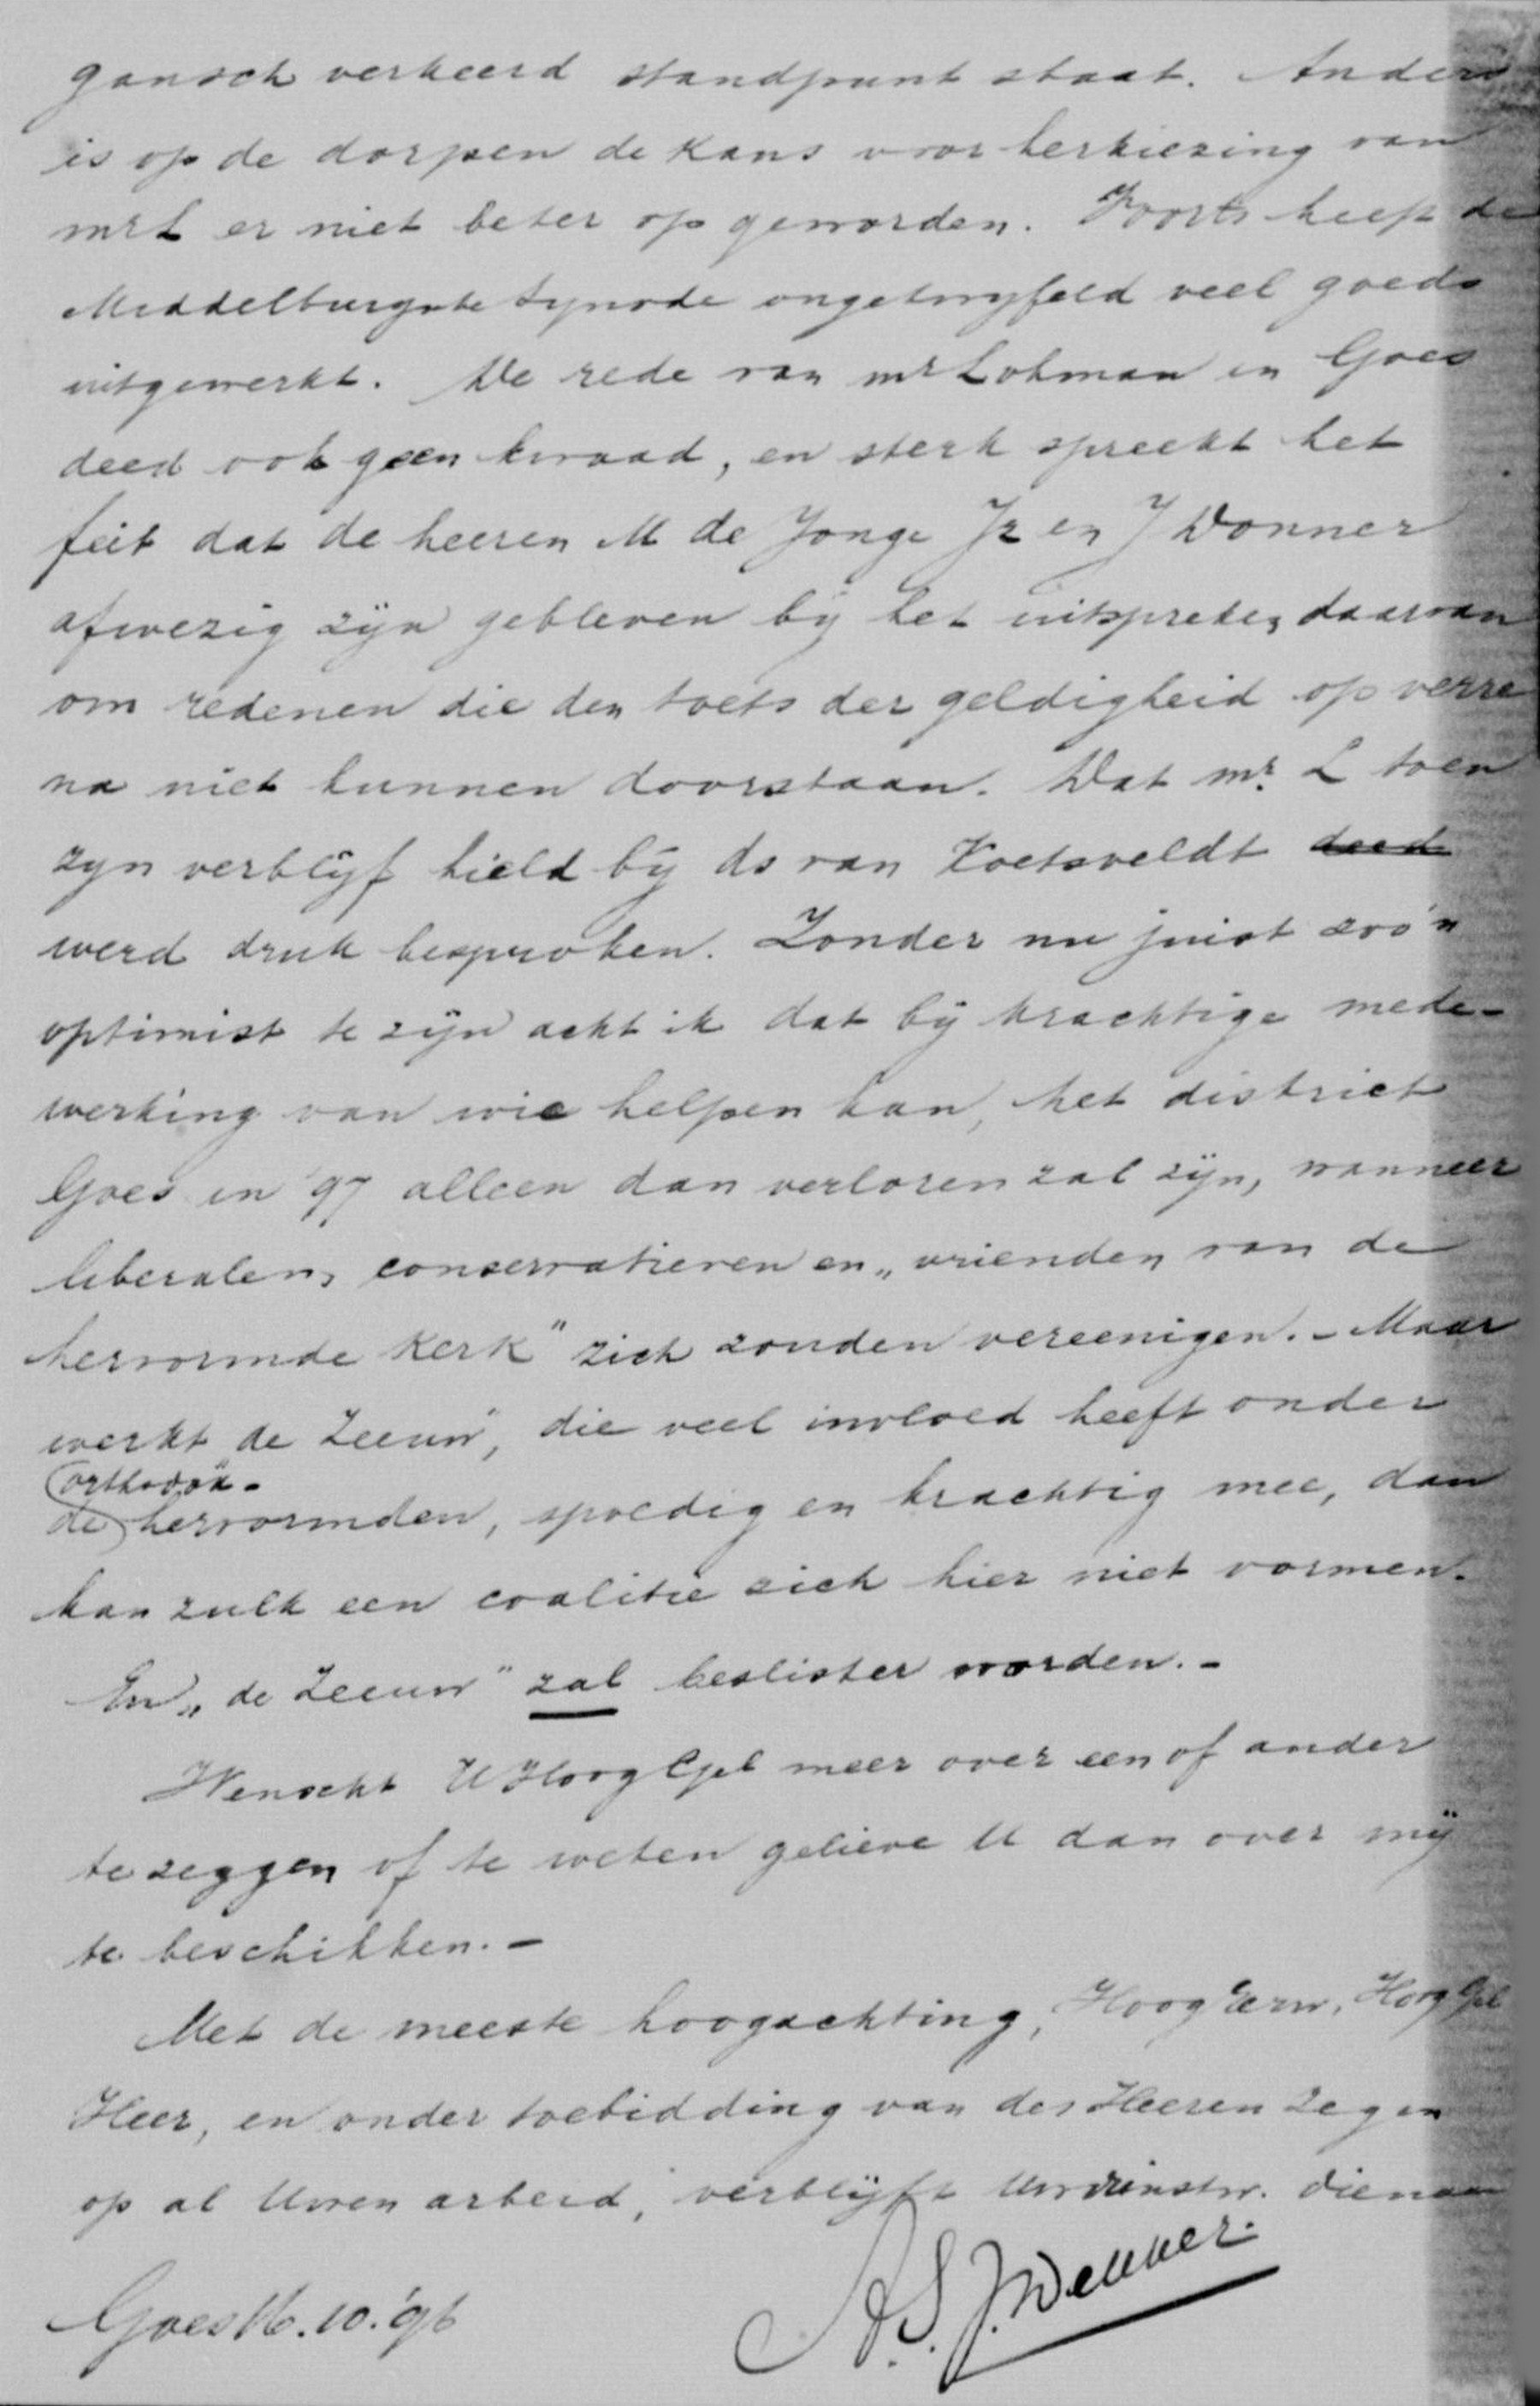 gansch verkeerd standpunt staat. Anders
is op de dorpen de kans voor herkiezing van
mr L er niet beter op geworden. Voorts heeft de
Middelburgste synode ongetwyfeld veel goeds
uitgewerkt. De rede van mr Lohman in Goes
deed ook geen kwaad, en sterk spreekt het
feit dat de heeren M de Jonge Jr en J Donner
afwezig zijn gebleven bij het uitspreken daarvan
om redenen die den toets der geldigheid op verre
na niet kunnen doorstaan. Dat mr. L toen
zyn verblijf hield bij ds van Koetsveldt deed
werd druk besproken. Zonder nu juist zoo'n
optimist te zijn acht ik dat bij krachtige mede-
werking van wie helpen kan, het district
Goes in '97 alleen dan verloren zal zijn, wanneer
liberalen, conservatieven en „vrienden van de
hervormde Kerk" zich zouden vereenigen. - Maar
werkt de Zeeuw", die veel invloed heeft onder
orthodox-
de hervormden, spoedig en krachtig mee, dan
kan zulk een coalitie zich hier niet vormen.
En „de Zeeuw" zal beslister worden. -
Wenscht U HoogGel meer over een of ander
te zeggen of te weten gelieve U dan over mij
te beschikken. -
Met de meeste hoogachting, HoogEerw, HoogGel
Heer, en onder toebidding van des Heeren zegen
op al Uwen arbeid, verblijft Uw dienstw. dienaar
Goes 16.10.'96